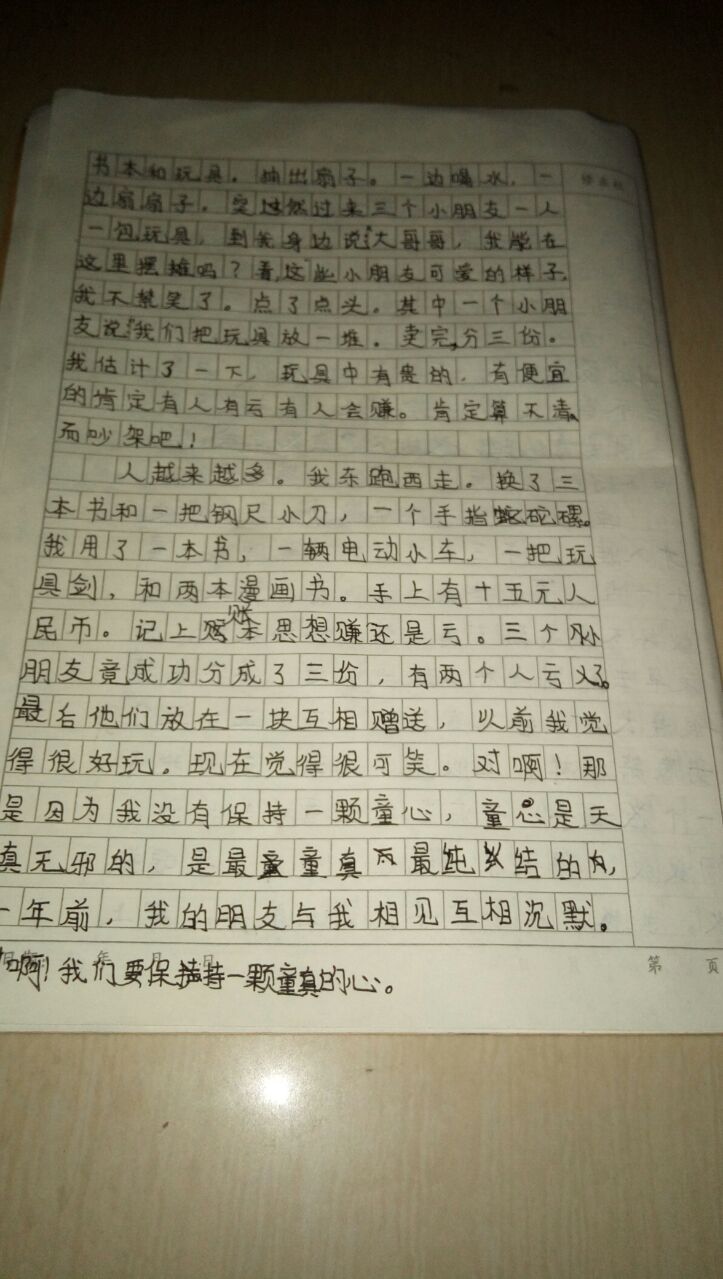 书本和玩具。抽出扇子。一边喝水，一
边扇扇子。突然过来三个小朋友一人
一包玩具，到我身边说："大哥哥，我能在
这里摆摊吗？看这些小朋友可爱的样子，
我不禁笑了。点了点头。其中一个小朋
友说"我们把玩具放一堆。卖完，分三份。
我估计了一下，玩具中有贵的，有便宜
的肯定有人有亏有人会赚。肯定算不清，
而吵架吧！
人越来越多。我东跑西走。换了三
本书和一把钢尺小刀，一个手指陀螺。
我用了一本书，一辆电动小车，一把玩
具剑，和两本漫画书。手上有十五元人
民币。记上账本思想赚还是亏。三个小
朋友竟成功分成了三份，有两个人亏了。
最后他们放在一块互相赠送，以前我觉
得很好玩。现在觉得很可笑。对啊！那
是因为我没有保持一颗童心，童心是天
真无邪的，是最童真最纯结的
一年前，我的朋友与我相见互相沉默。
啊！我们要保持一颗童真的心。
第 页